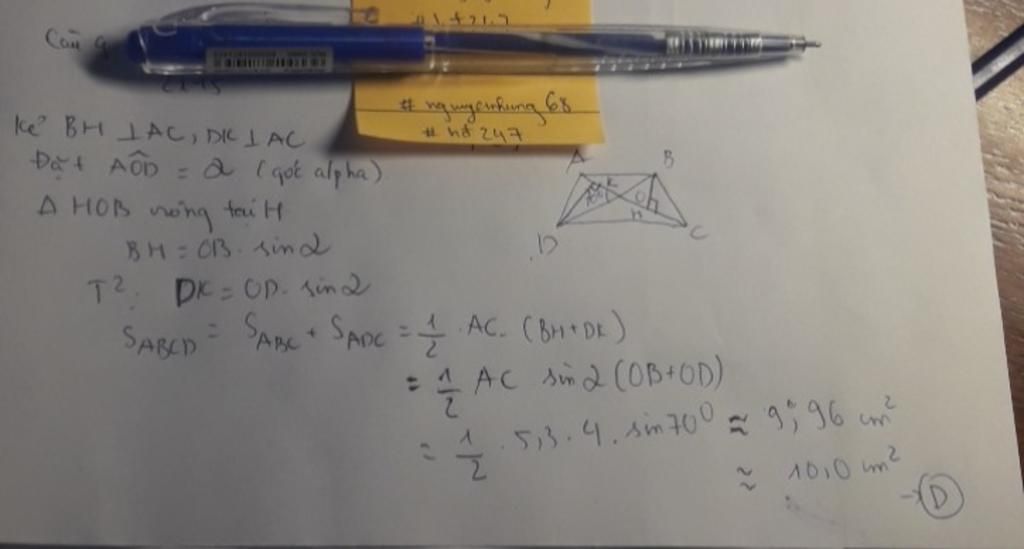 Câu 9
# nguyenhung68
# hđ 247
Kẻ BH ⊥ AC, DK ⊥ AC
Đặt AÔD = α (góc alpha)
Δ HOB vuông tại H
BH = OB. sin α
T²: DK = OD. sin α
S_ABCD = S_ABC + S_ADC = 1/2 . AC. (BH + DK)
= 1/2 AC sin α (OB + OD)
= 1/2 . 5,3 . 4 . sin 70° ≈ 9,96 cm²
≈ 10,0 cm²
→ D
A B
K O
H
D C